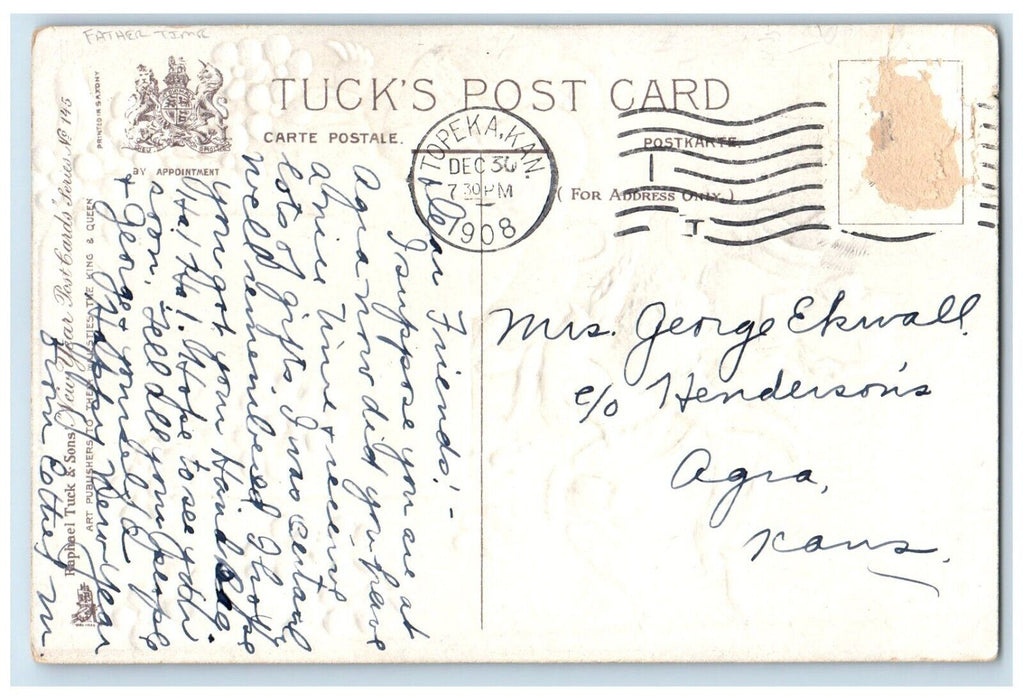 FATHER TIME
TUCK'S POST CARD
CARTE POSTALE.
POSTKARTE.
(FOR ADDRESS ONLY.)
BY APPOINTMENT
PRINTED IN SAXONY
Raphael Tuck & Sons' "New Year" Post Cards' Series. No 145
ART PUBLISHERS TO THEIR MAJESTIES THE KING & QUEEN
TOPEKA, KAN.
DEC 30
7 30 PM
1908
Dear Friends! -
I suppose you are at
Agra now did you have
a nice time & receive
lots of gifts, I was certainly
well remembered I hope
you got your Hand
Ha! Ha!. Hope to see you
soon, Tell all your people
& George & yourself a
Happy New Year
from
Mrs. George Ekwall
c/o Henderson's
Agra,
Kans.